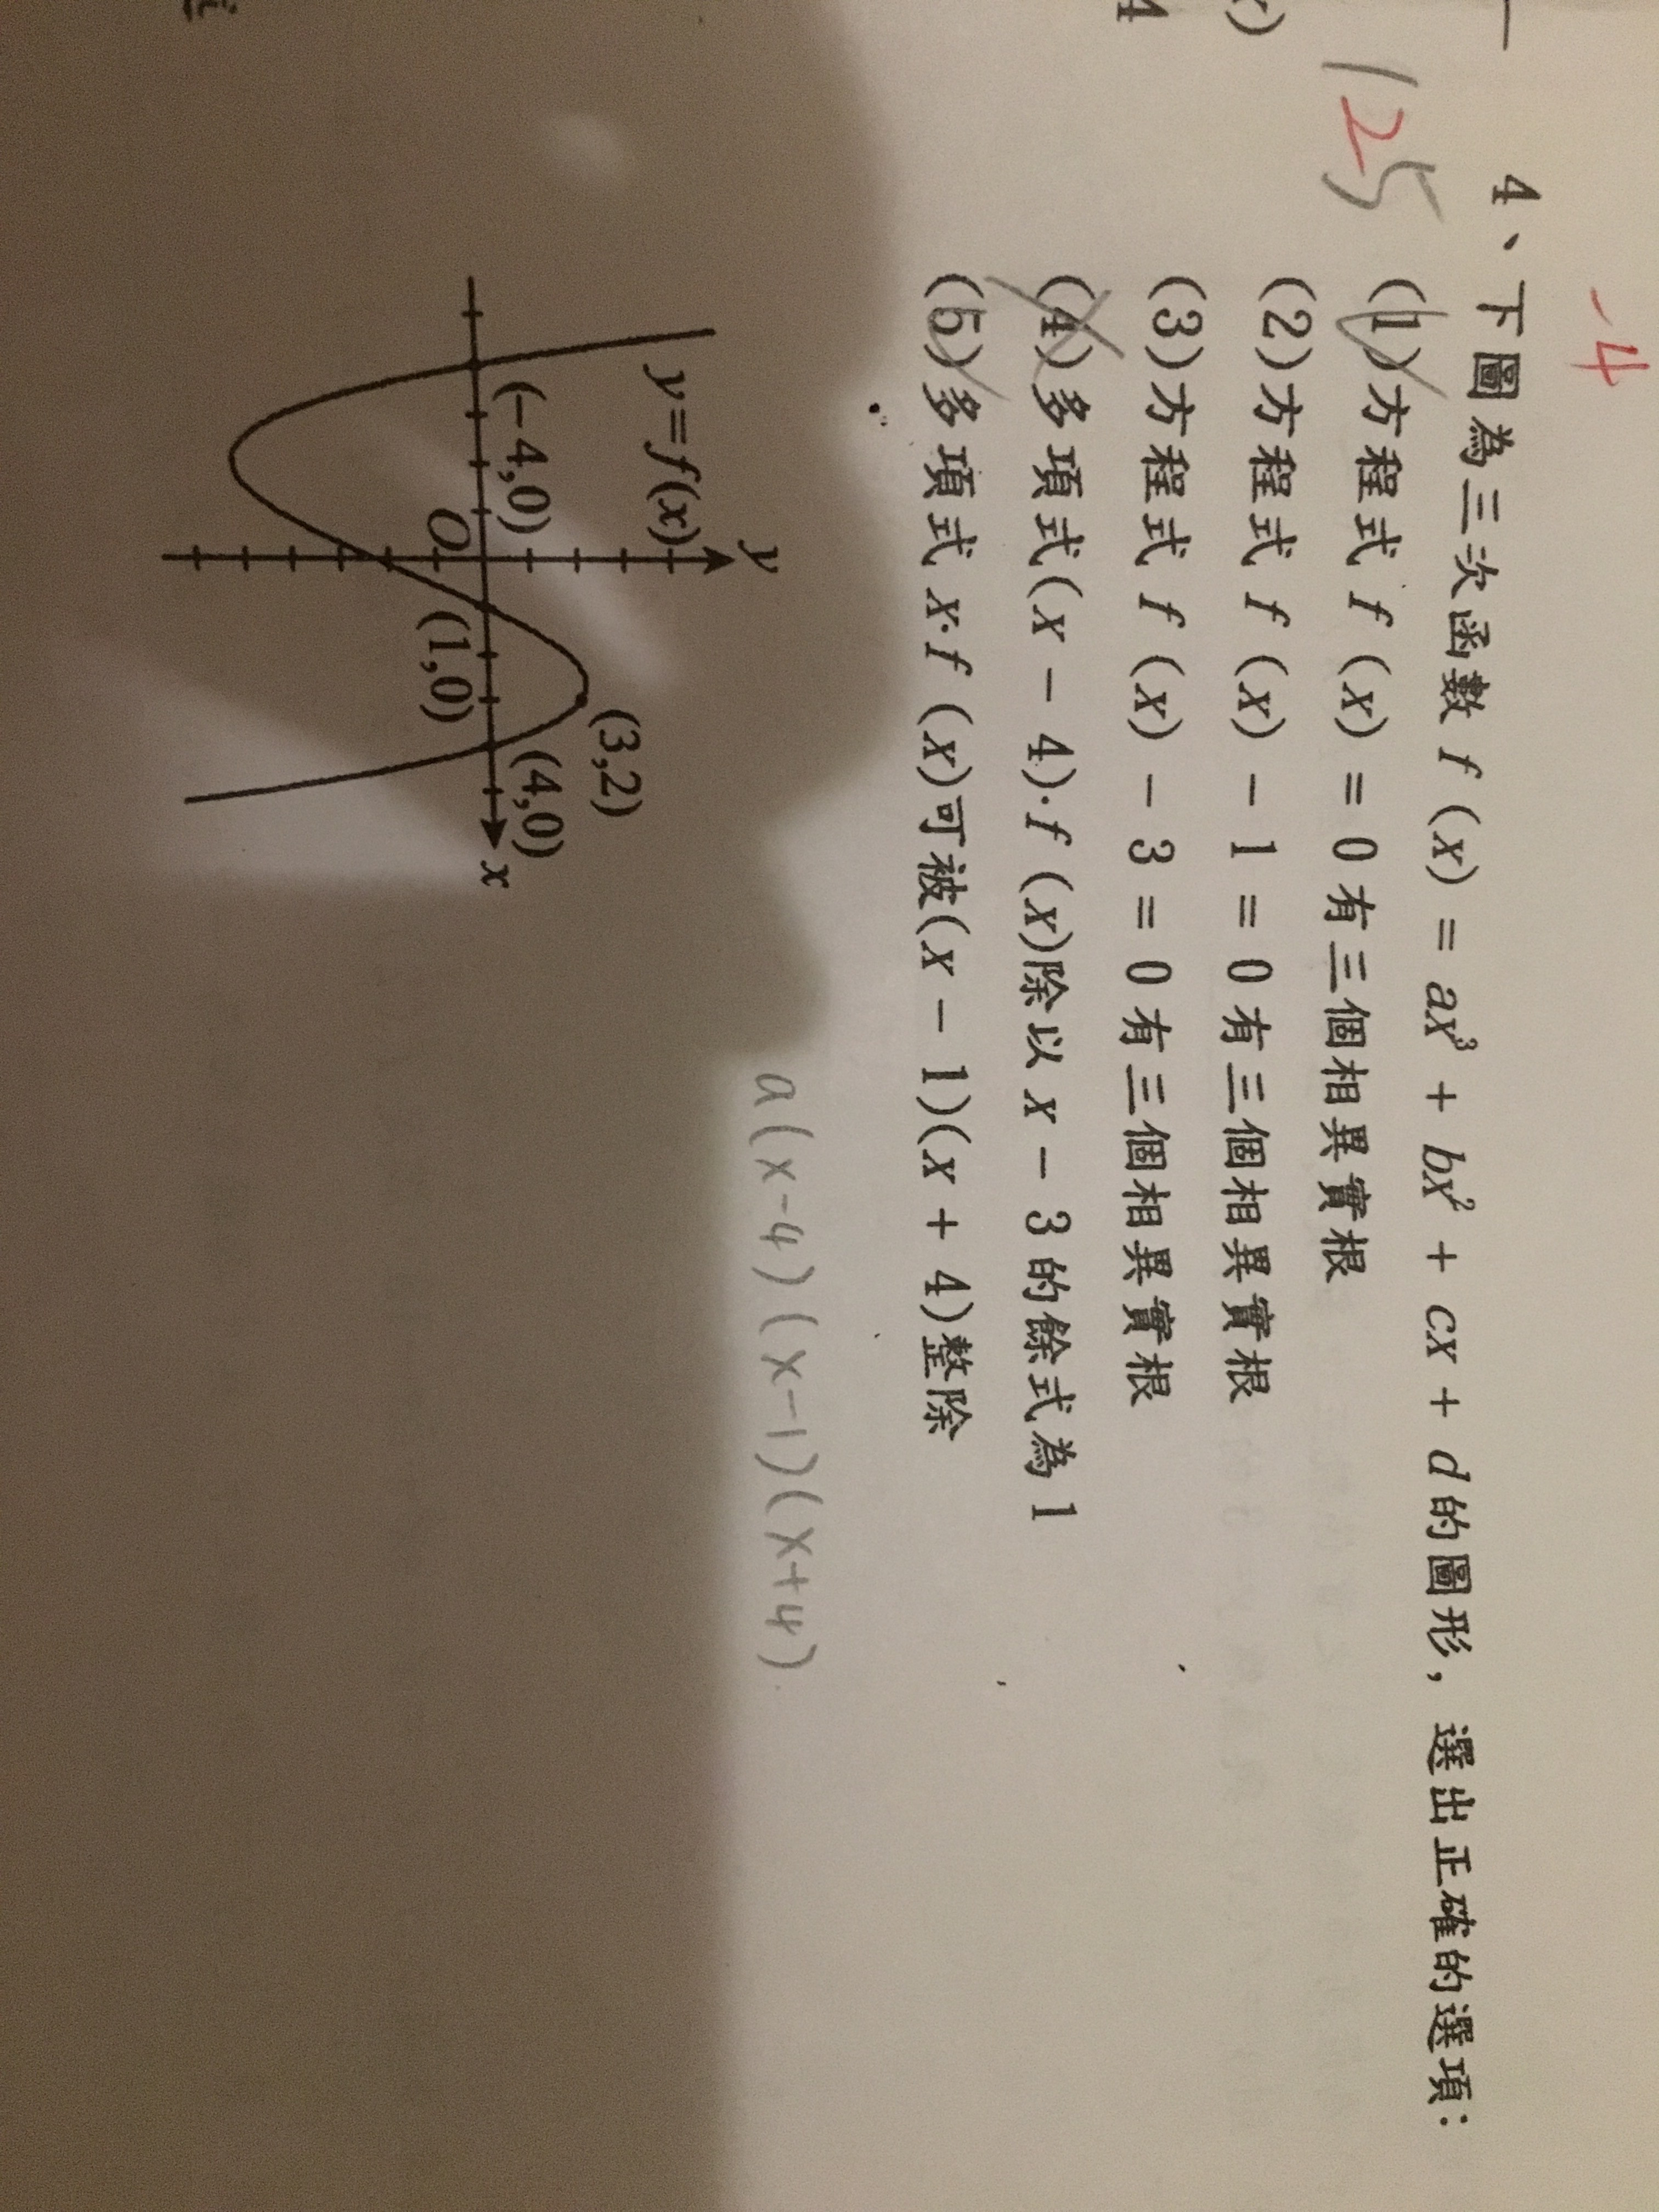 -4
125
4、下圖為三次函數 f (x) = ax³ + bx² + cx + d 的圖形，選出正確的選項：
(1)方程式 f (x) = 0 有三個相異實根
(2)方程式 f (x) - 1 = 0 有三個相異實根
(3)方程式 f (x) - 3 = 0 有三個相異實根
(4)多項式(x - 4)·f (x)除以 x - 3 的餘式為 1
(5)多項式 x·f (x)可被(x - 1)(x + 4)整除
a(x-4)(x-1)(x+4)
y
y=f(x)
(3,2)
(-4,0)
(4,0)
x
O
(1,0)
x)
4